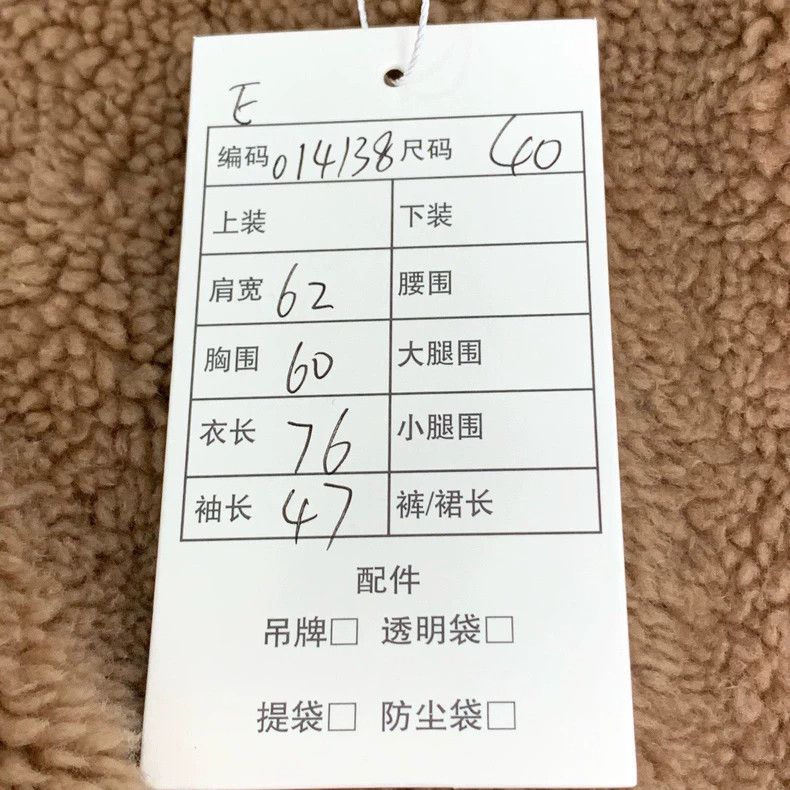 E
编码 014138 尺码 40
上装 下装
肩宽 62 腰围
胸围 60 大腿围
衣长 76 小腿围
袖长 47 裤/裙长
配件
吊牌□ 透明袋□
提袋□ 防尘袋□